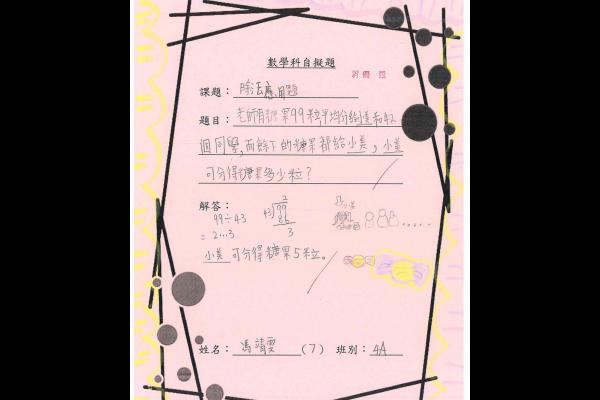 數學科自擬題
課題：除法應用題
題目：老師有糖果99粒平均分給小美和42
個同學,而餘下的糖果都給小美,小美
可分得糖果多少粒?
解答：
99÷43
=2...3
2
43)99
86
3
小美
小美可分得糖果5粒。
姓名：馮靖雯(7) 班別：4A